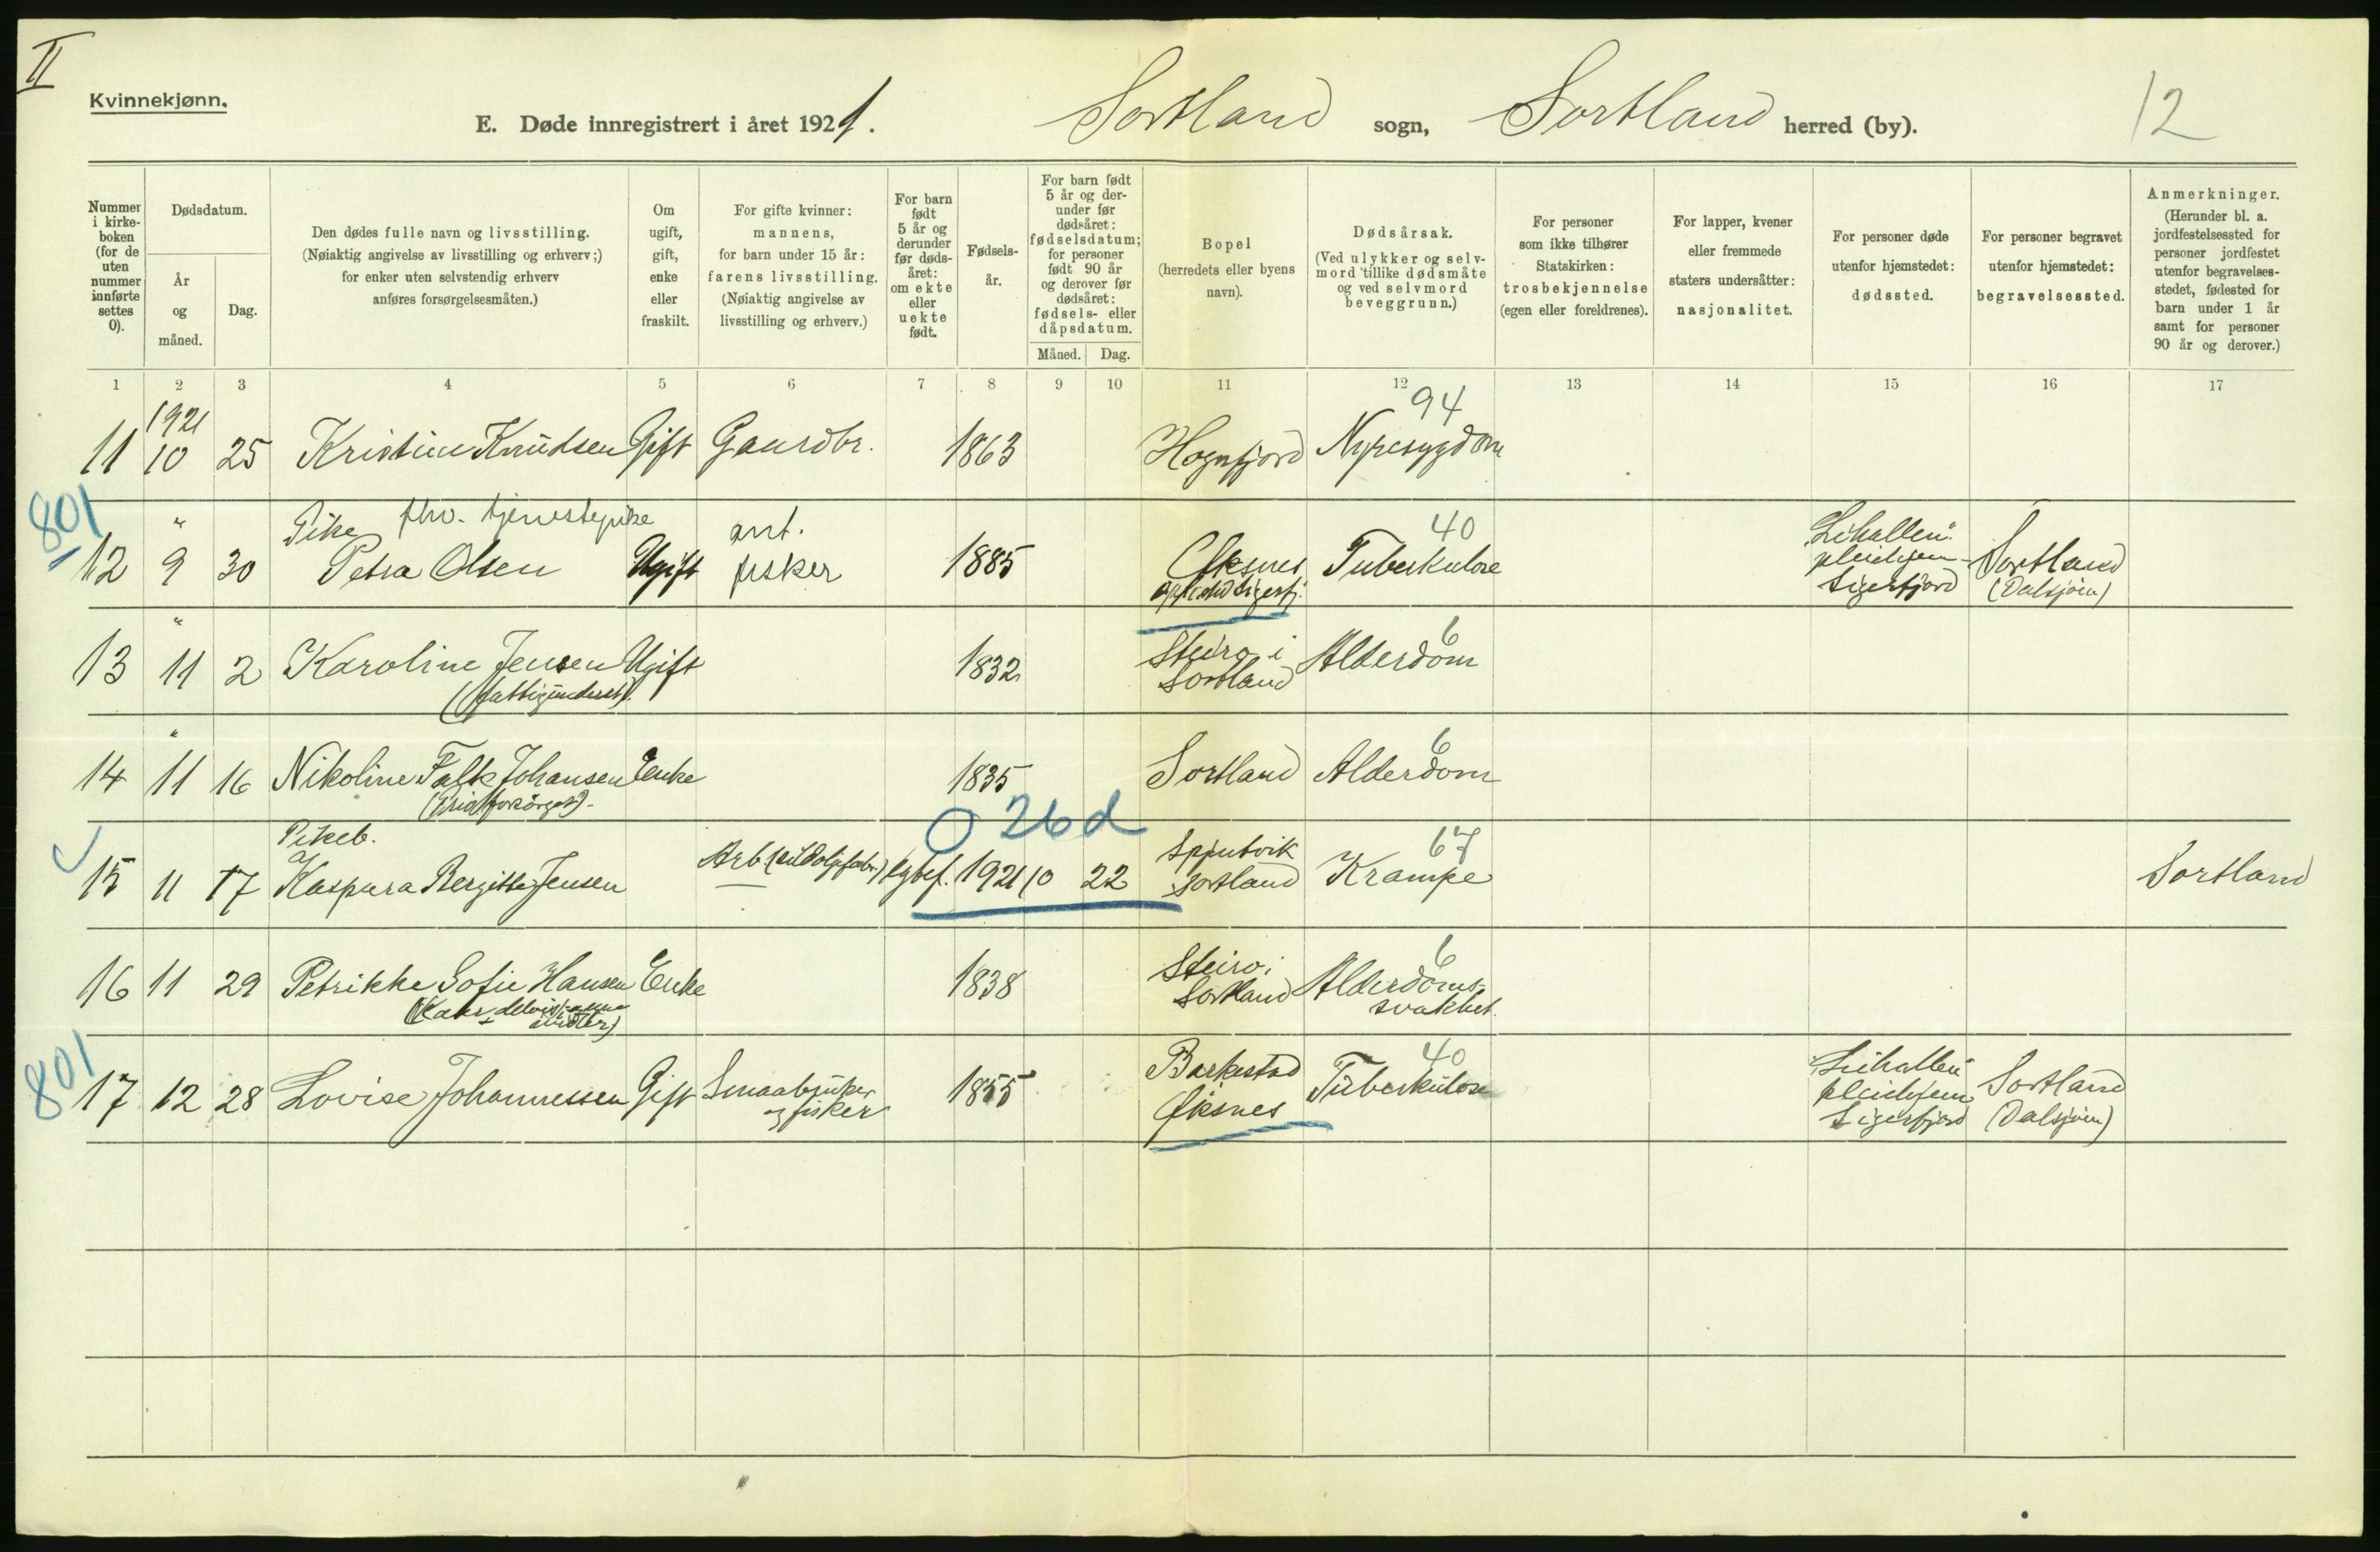 II
Kvinnekjønn.
E. Døde innregistrert i året 1921. Sortland sogn, Sortland herred (by). 12
Nummer i kirke- boken (for de uten nummer innførte settes 0).
Dødsdatum.
År og måned.
Dag.
Den dødes fulle navn og livsstilling.
(Nøiaktig angivelse av livsstilling og erhverv;)
for enker uten selvstendig erhverv
anføres forsørgelsesmåten.)
Om ugift, gift, enke eller fraskilt.
For gifte kvinner:
mannens,
for barn under 15 år:
farens livsstilling.
(Nøiaktig angivelse av
livsstilling og erhverv.)
For barn født 5 år og derunder før døds- året: om ekte eller uekte født.
Fødsels- år.
For barn født 5 år og der- under før dødsåret: fødselsdatum; for personer født 90 år og derover før dødsåret: fødsels- eller dåpsdatum.
Måned. Dag.
Bopel
(herredets eller byens
navn).
Dødsårsak.
(Ved ulykker og selv-
mord tillike dødsmåte
og ved selvmord
beveggrunn.)
For personer
som ikke tilhører
Statskirken:
trosbekjennelse
(egen eller foreldrenes).
For lapper, kvener
eller fremmede
staters undersåtter:
nasjonalitet.
For personer døde
utenfor hjemstedet:
dødssted.
For personer begravet
utenfor hjemstedet:
begravelsessted.
Anmerkninger.
(Herunder bl. a.
jordfestelsessted for
personer jordfestet
utenfor begravelses-
stedet, fødested for
barn under 1 år
samt for personer
90 år og derover.)
1 2 3 4 5 6 7 8 9 10 11 12 13 14 15 16 17
1921 94
11 10 25 Kristine Knudsen Gift Gaardbr. 1863 Hognfjord Nyresygdom
801 " Pike fhv. tjenestepike ant. 40 Lihallen
12 9 30 Petra Olsen Ugift fisker 1885 Øksnes Tuberkulose pleiehjem Sortland
Sigerfjord (Dalsjöen)
" 6
13 11 2 Karoline Jensen Ugift 1832 Steiro i Sortland Alderdom
(fattigunderst).
" 6
14 11 16 Nikoline Falk Johansen Enke 1835 Sortland Alderdom
O 26 d
Pikeb. 67
15 11 17 Kaspara Bergitte Jensen Arb. (sildoljefabr.) egtef. 1921 10 22 Spjutvik Sortland Krampe Sortland
6
16 11 29 Petrikke Sofie Hansen Enke 1838 Steiro i Sortland Alderdoms-
svakhet
801 40
17 12 28 Lovise Johannessen Gift Smaabruker 1855 Barkestad Tuberkulose Lihallen Sortland
og fisker Øksnes pleiehjem (Dalsjöen)
Sigerfjord